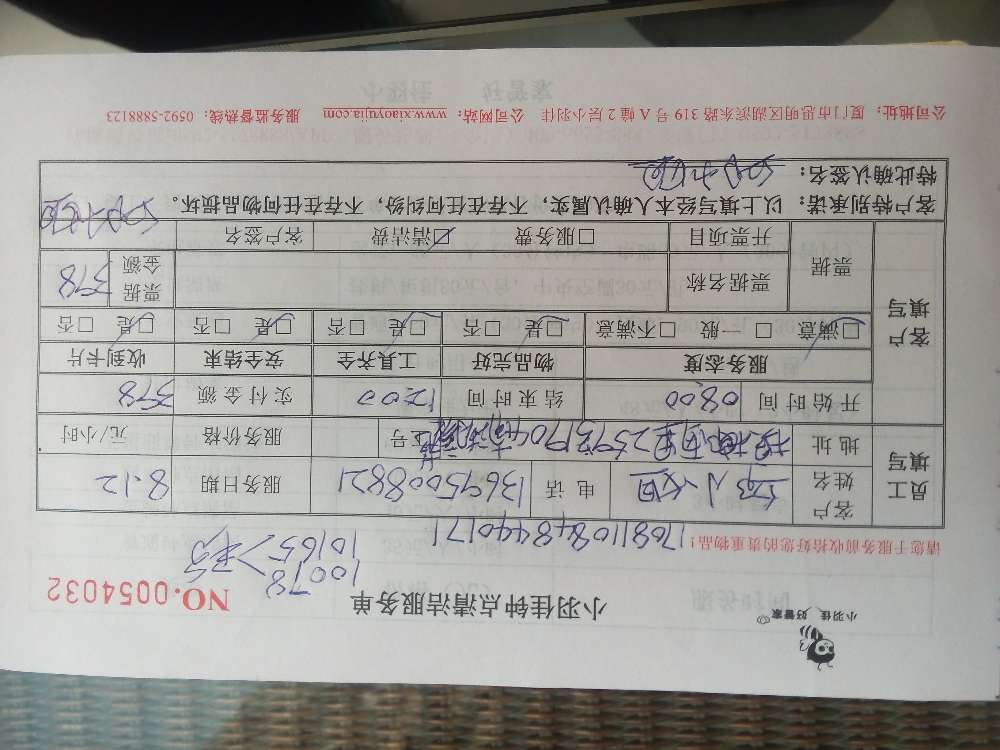 小羽佳 好管家
小羽佳钟点清洁服务单
NO.0054032
10078
10165
请您于服务前收拾好您的贵重物品!
17681108484401171
员工填写
客户姓名
小姐
电话
13695008821
服务日期
8.12
地址
259号
1704
座号
服务价格
元/小时
开始时间
08:00
结束时间
12:00
实付金额
378
客户填写
服务态度
物品完好
工具齐全
安全结束
收到卡片
☑满意 □一般 □不满意
☑是 □否
☑是 □否
☑是 □否
☑是 □否
票据
票据名称
票据金额
378
开票项目
□服务费 ☑清洁费
客户签名
客户特别承诺: 以上填写经本人确认属实,不存在任何纠纷,不存在任何物品损坏。
特此确认签名:
公司地址:厦门市思明区湖滨东路 319 号 A 幢 2 层小羽佳 公司网站:www.xiaoyujia.com 服务监督热线:0592-5888123